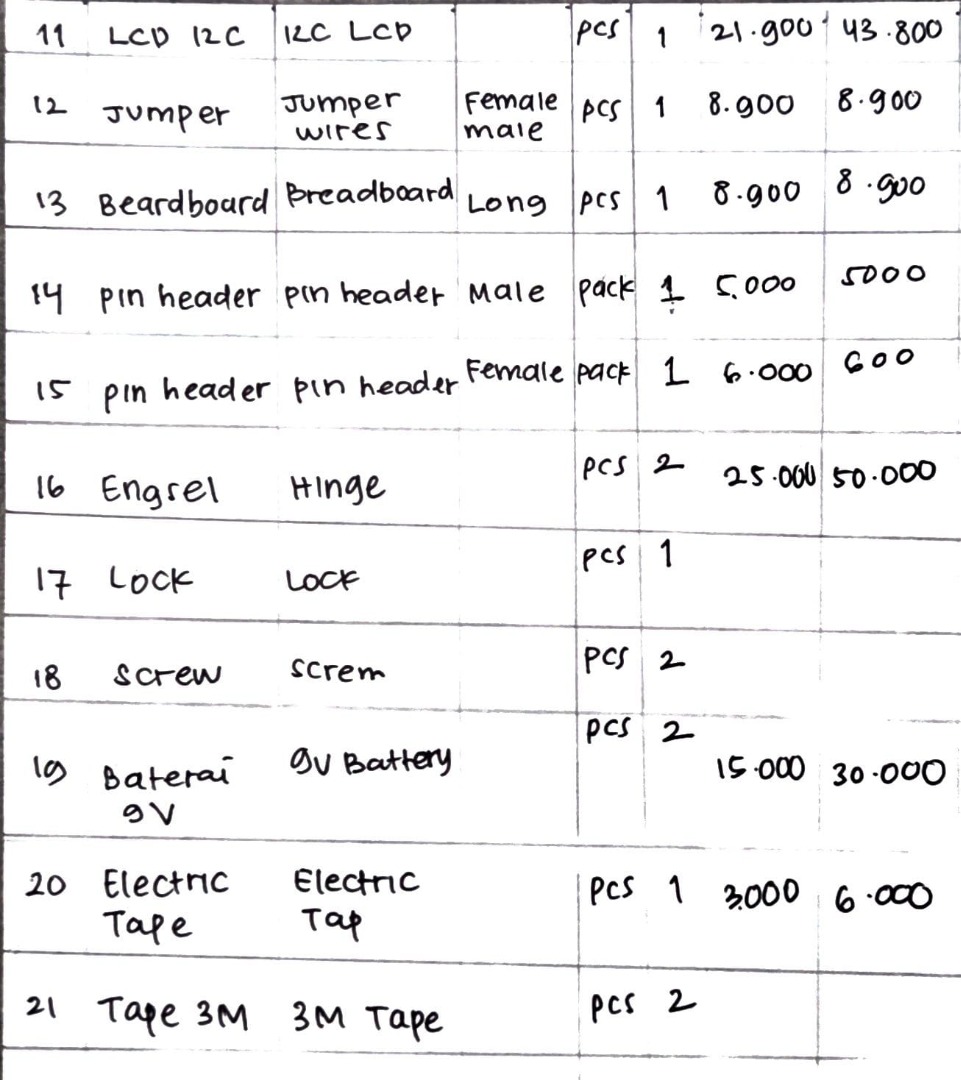 11 LCD I2C I2C LCD pcs 1 21.900 43.800
12 Jumper Jumper wires Female male pcs 1 8.900 8.900
13 Beardboard Breadboard Long pcs 1 8.900 8.900
14 pin header pin header Male pack 1 5.000 5000
15 pin header pin header Female pack 1 6.000 600
16 Engsel Hinge pcs 2 25.000 50.000
17 Lock Lock pcs 1
18 Screw screm pcs 2
19 Baterai 9V 9V Battery pcs 2 15.000 30.000
20 Electric Tape Electric Tap pcs 1 3.000 6.000
21 Tape 3M 3M Tape pcs 2